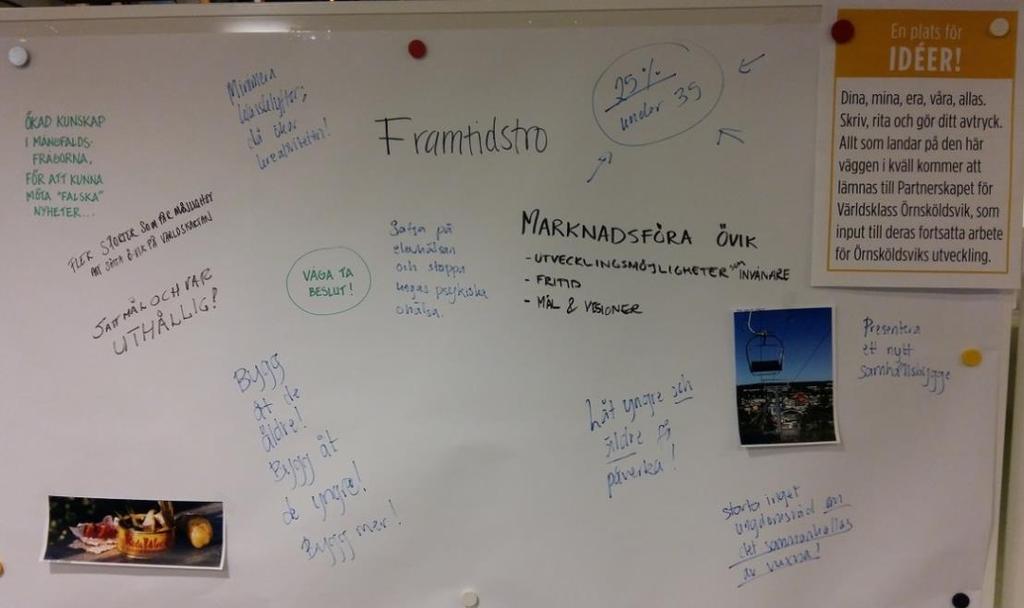 En plats för
IDÉER!
Dina, mina, era, våra, allas.
Skriv, rita och gör ditt avtryck.
Allt som landar på den här
väggen i kväll kommer att
lämnas till Partnerskapet för
Världsklass Örnsköldsvik, som
input till deras fortsatta arbete
för Örnsköldsviks utveckling.
Framtidstro
25%
under 35
Minimera
då ökar
kreativiteten!
ÖKAD KUNSKAP
I MÅNGFALDS-
FRÅGORNA,
FÖR ATT KUNNA
MÖTA "FALSKA"
NYHETER...
FLER STORIER SOM GÖR MÖJLIGHET
ATT SÄTTA ÖVIK PÅ VÄRLDSKARTAN
SÄTT MÅL OCH VAR
UTHÅLLIG!
VÅGA TA
BESLUT!
Satsa på
elevhälsan
och stoppa
ungas psykiska
ohälsa.
MARKNADSFÖRA ÖVIK
- UTVECKLINGSMÖJLIGHETER som INVÅNARE
- FRITID
- MÅL & VISIONER
Presentera
ett nytt
samhällsbygge
Bygg
åt de
äldre!
Bygg åt
de yngre!
Bygg mer!
Låt yngre och
äldre få
påverka!
starta inget
ungdomsråd om
det sammankallas
av vuxna!